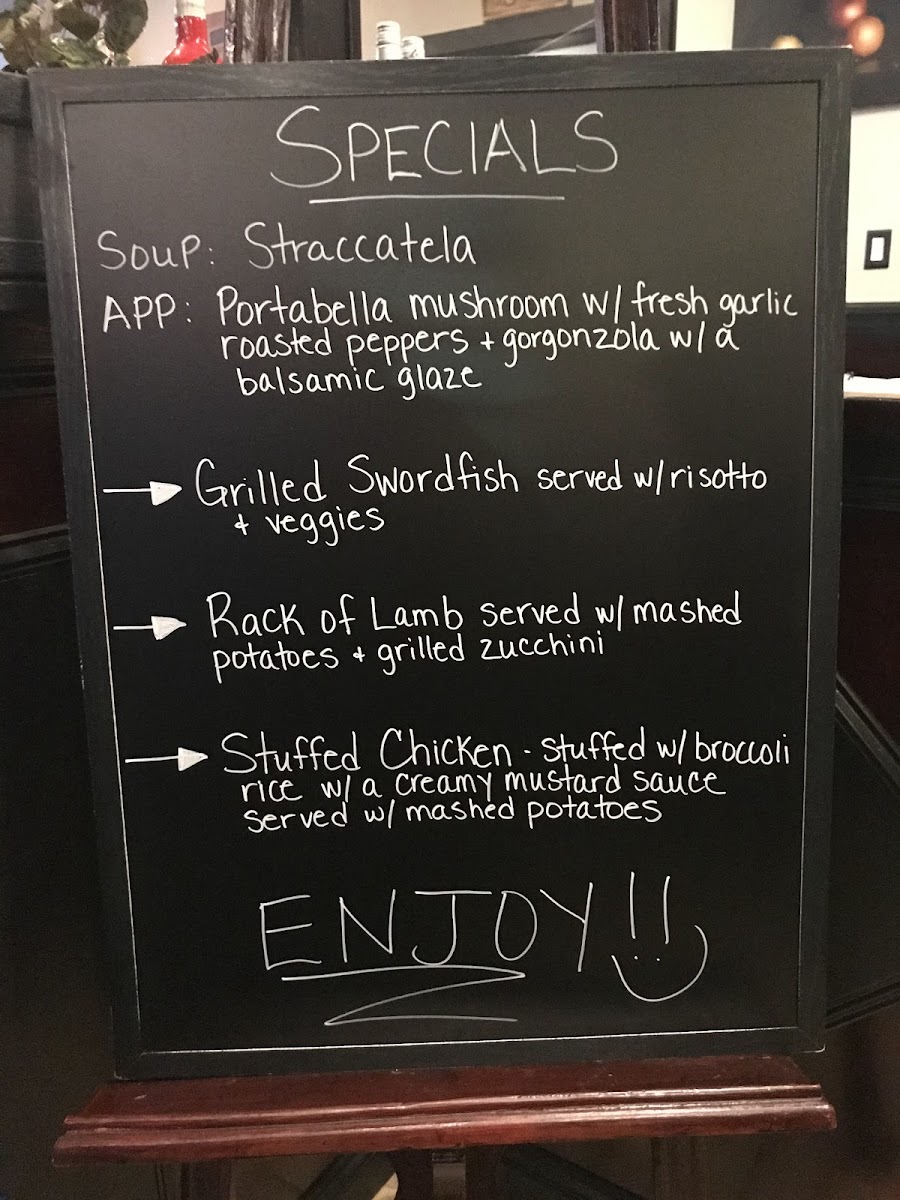 SPECIALS
SOUP: Straccatela
APP: Portabella mushroom w/ fresh garlic
roasted peppers + gorgonzola w/ a
balsamic glaze
Grilled Swordfish served w/ risotto
+ veggies
Rack of Lamb served w/ mashed
potatoes + grilled zucchini
Stuffed Chicken - stuffed w/ broccoli
rice w/ a creamy mustard sauce
served w/ mashed potatoes
ENJOY!!